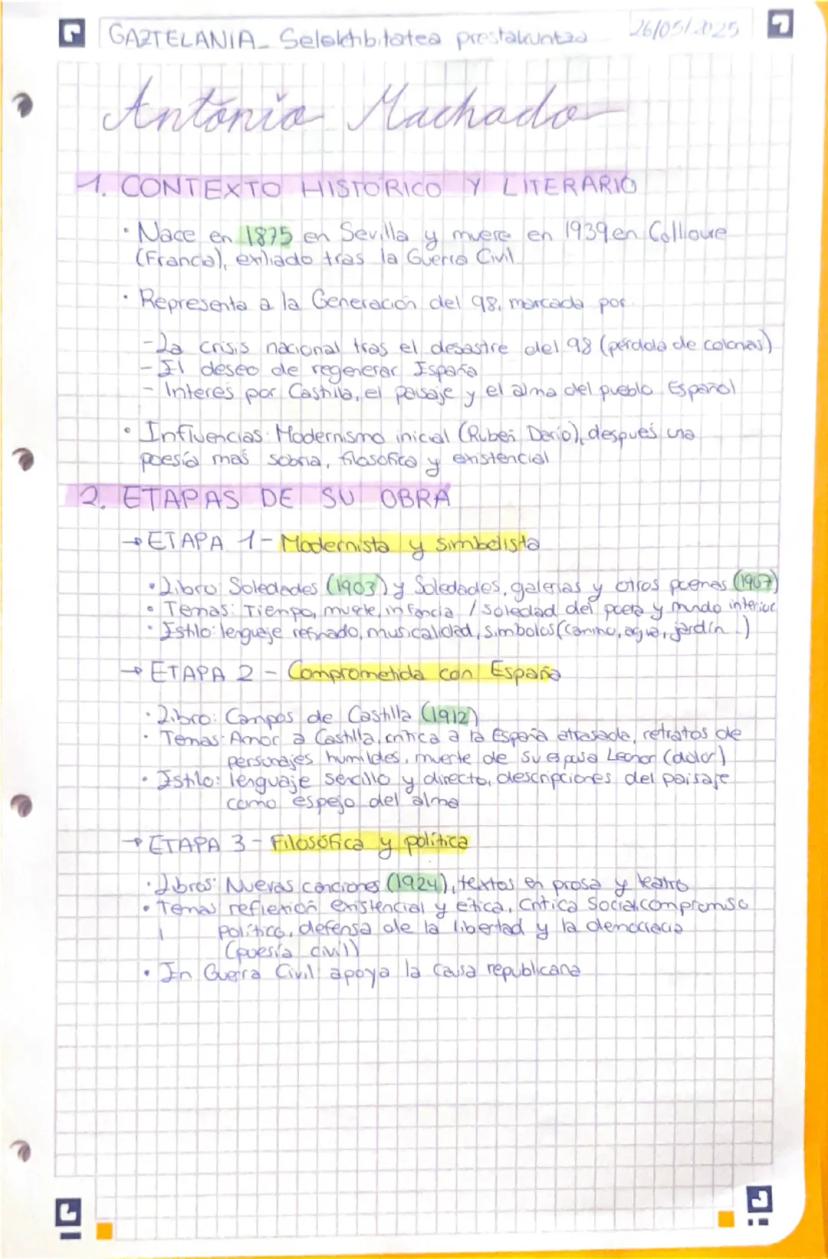 GAZTELANIA_ Selektibitatea prestakuntza 26/05/2025
Antonio Machado
1. CONTEXTO HISTÓRICO Y LITERARIO
· Nace en 1875 en Sevilla y muere en 1939 en Collioure
(Francia), exiliado tras la Guerra Civil
· Representa a la Generación del 98, marcada por
- La crisis nacional tras el desastre del 98 (pérdida de colonias)
- El deseo de regenerar España
- Interés por Castilla, el paisaje y el alma del pueblo Español
· Influencias: Modernismo inicial (Rubén Darío), después una
poesía más sobria, filosófica y existencial
2. ETAPAS DE SU OBRA
→ ETAPA 1 - Modernista y simbolista
· Libro: Soledades (1903) y Soledades, galerías y otros poemas (1907)
· Temas: Tiempo, muerte, infancia / soledad del poeta y mundo interior
· Estilo: lenguaje refinado, musicalidad, símbolos (camino, agua, jardín..)
→ ETAPA 2 - Comprometida con España
· Libro: Campos de Castilla (1912)
· Temas: Amor a Castilla, crítica a la España atrasada, retratos de
personajes humildes, muerte de su esposa Leonor (dolor)
· Estilo: lenguaje sencillo y directo, descripciones del paisaje
como espejo del alma
→ ETAPA 3 - Filosófica y política
· Libros: Nuevas canciones (1924), textos en prosa y teatro
· Temas reflexión existencial y ética, Crítica social, compromiso
político, defensa de la libertad y la democracia
(poesía civil)
· En Guerra Civil apoya la causa republicana